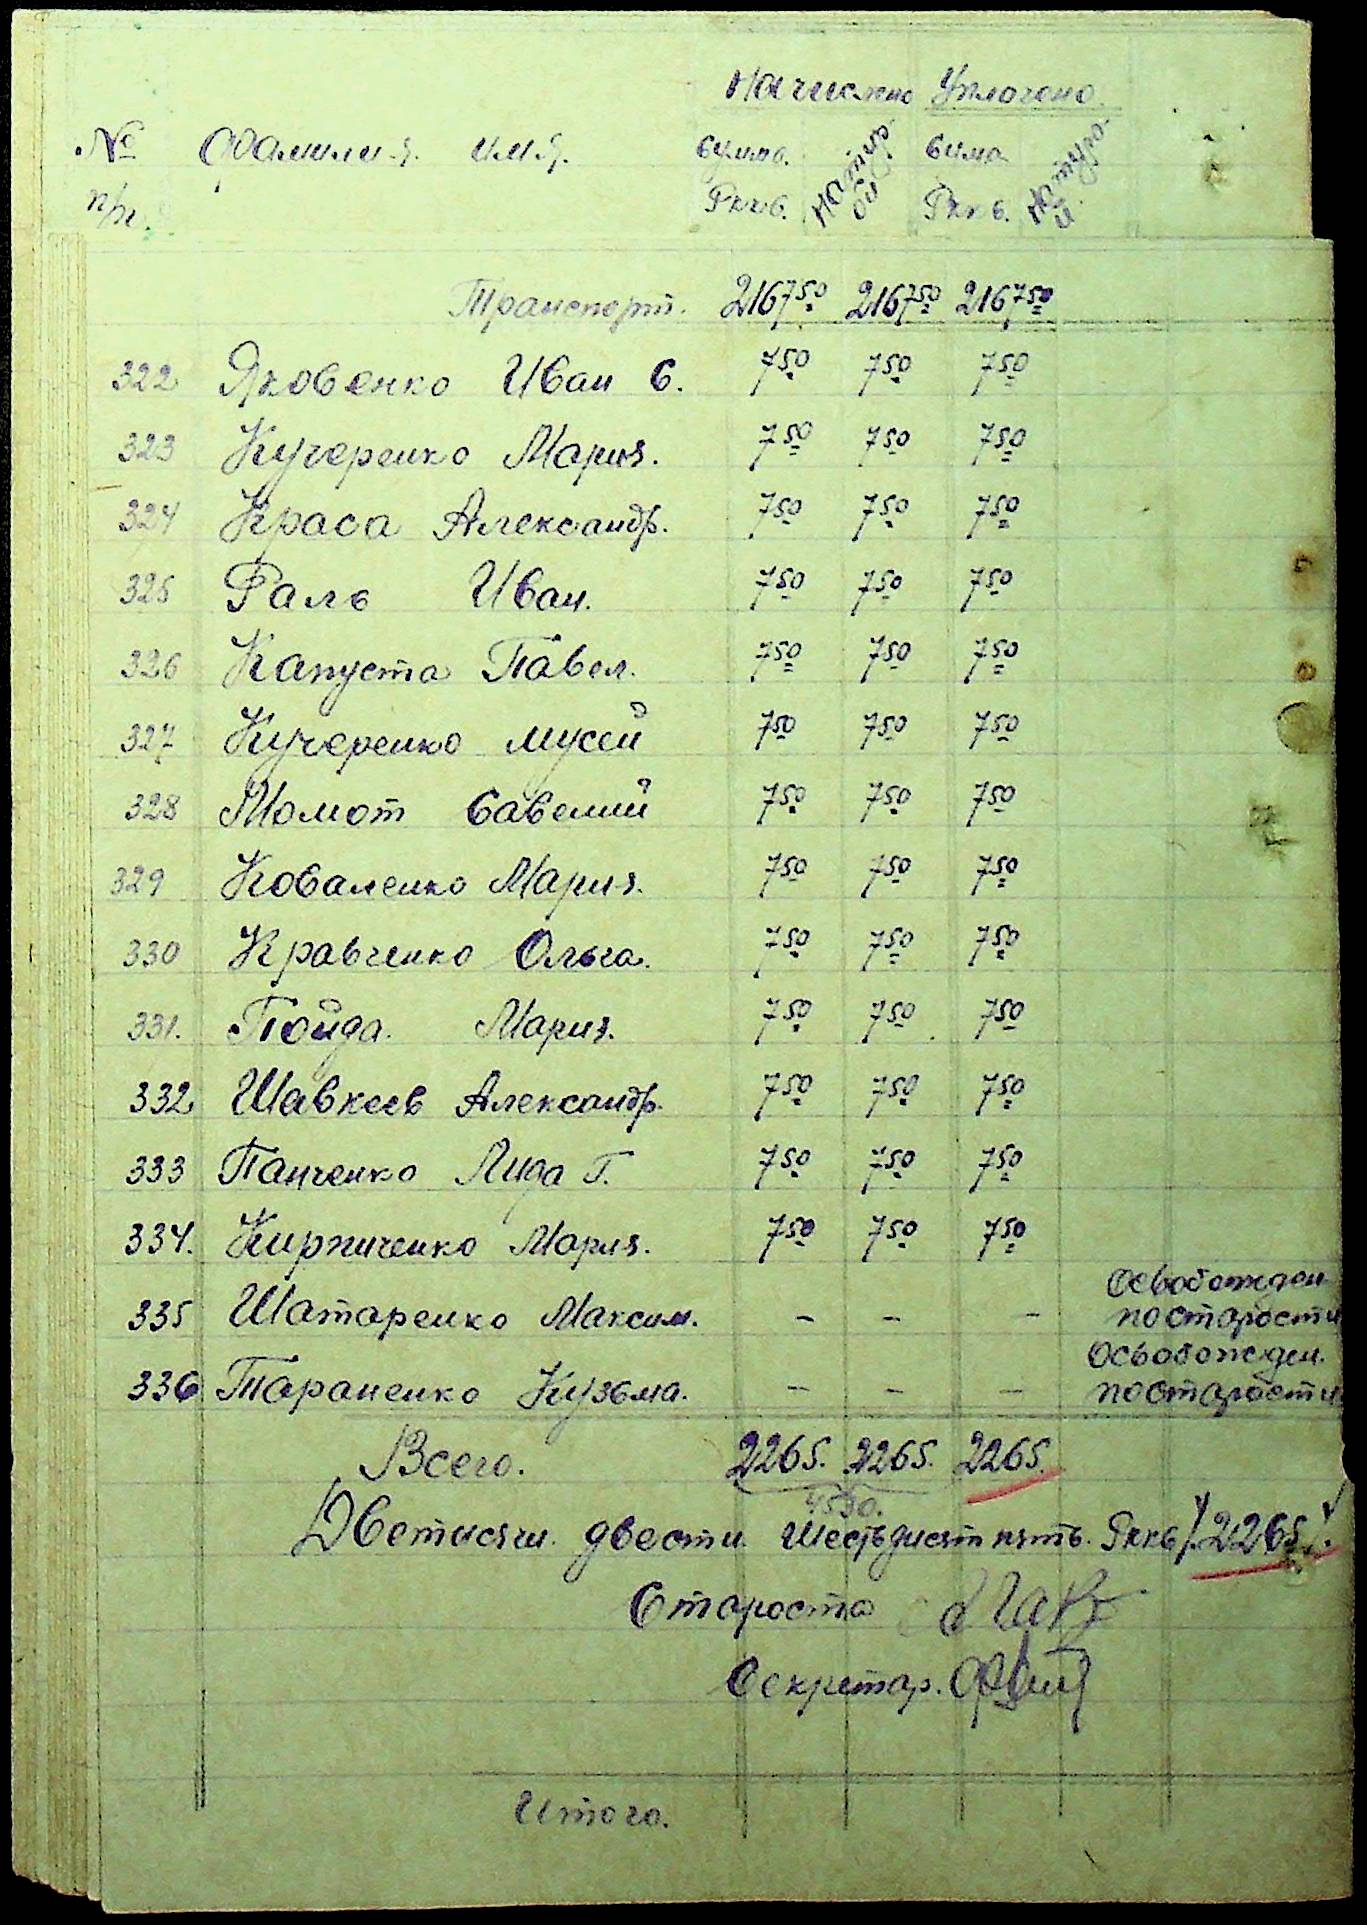 Начислено Уплочено.
№ Фамилия. имя. сумма. Натур. сума Натуро-
п/п. Рккв. ой Ркк в. й.
Транспорт. 2167 50 2167 50 2167 50
322 Яковенко Иван С. 7 50 7 50 7 50
323 Кучеренко Мария. 7 50 7 50 7 50
324 Краса Александр. 7 50 7 50 7 50
325 Галь Иван. 7 50 7 50 7 50
326 Капуста Павел. 7 50 7 50 7 50
327 Кучеренко мусей 7 50 7 50 7 50
328 Момот Савелий 7 50 7 50 7 50
329 Коваленко Мария. 7 50 7 50 7 50
330 Кравченко Ольга. 7 50 7 50 7 50
331. Пойда. Мария. 7 50 7 50 7 50
332 Шавкеев Александр. 7 50 7 50 7 50
333 Панченко Лида Г. 7 50 7 50 7 50
334. Кирпиченко Мария. 7 50 7 50 7 50
335 Шатаренко Максим. – – – Освобожден по старости
336 Тараненко Кузьма. – – – Освобожден. по старости
Всего. 2265. 2265. 2265.
4530.
Дветисячи. двести. Шестьдисят пять. Рккв /.2265/.
Староста
Секретар.
Итого.